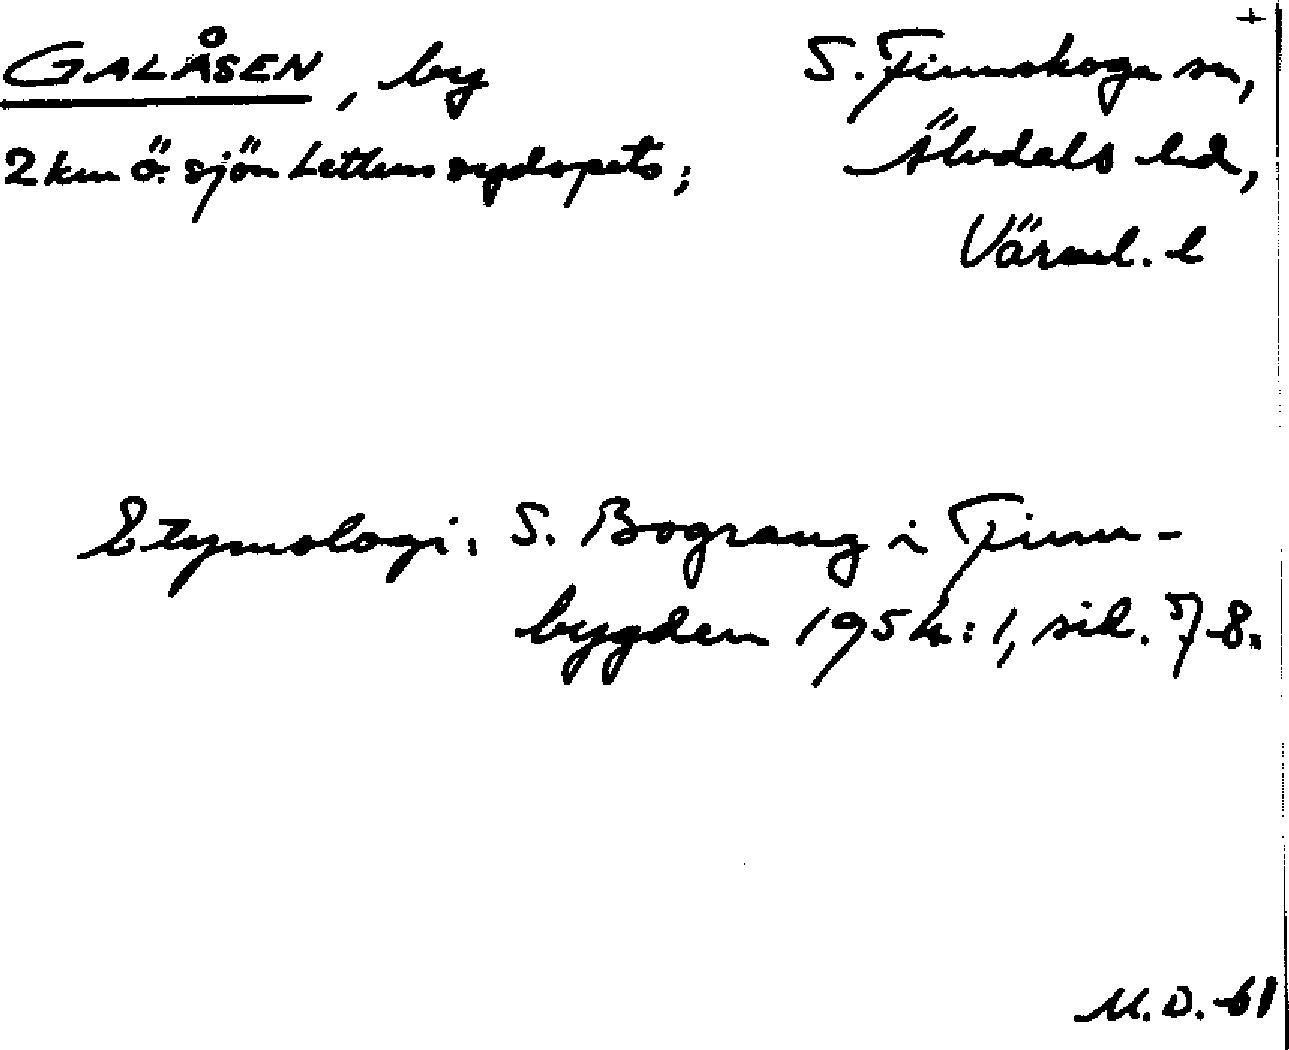 +
GALÅSEN, by S. Finnskoga sn,
2 km ö. sjön Lettens sydspets; Älvdals hd,
Värml. l
Etymologi: S. Bograng i Finn-
bygden 1954:1, sid. 7-8.
M.D. -61